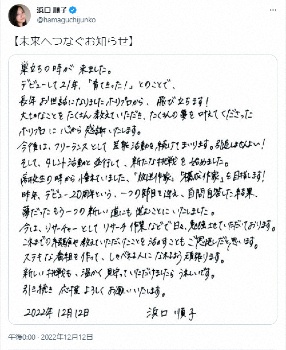 浜口順子
@hamaguchijunko
【未来へつなぐお知らせ】
巣立ちの時が来ました。
デビューして21年、「育ちきった!」とのことで、
長年お世話になりましたホリプロから、飛び立ちます!
大切なことをたくさん教えていただき、たくさんの夢を叶えてくださった
ホリプロに心から感謝いたします。
今後は、フリーランスとして芸能活動を続けてまいります。引退はしない!
そして、タレント活動と並行して、新たな挑戦を始めました。
高校生の時から憧れていました、"放送作家""構成作家"を目指します!
昨年、デビュー20周年という、一つの節目を迎え、自問自答した結果、
夢だったもう一つの新しい道にも進むことにいたしました。
今は、リサーチャーとしてリサーチ作業などで日々、勉強させていただいております。
これまでの経験や教えていただいたことを活かすことも恩返しだと思います。
ステキな番組を作って、しゃべる人になれるよう頑張ります。
新しい挑戦も、温かく見守っていただけましたらうれしいです。
引き続き応援よろしくお願いいたします。
2022年12月12日 浜口順子
午後0:00 · 2022年12月12日